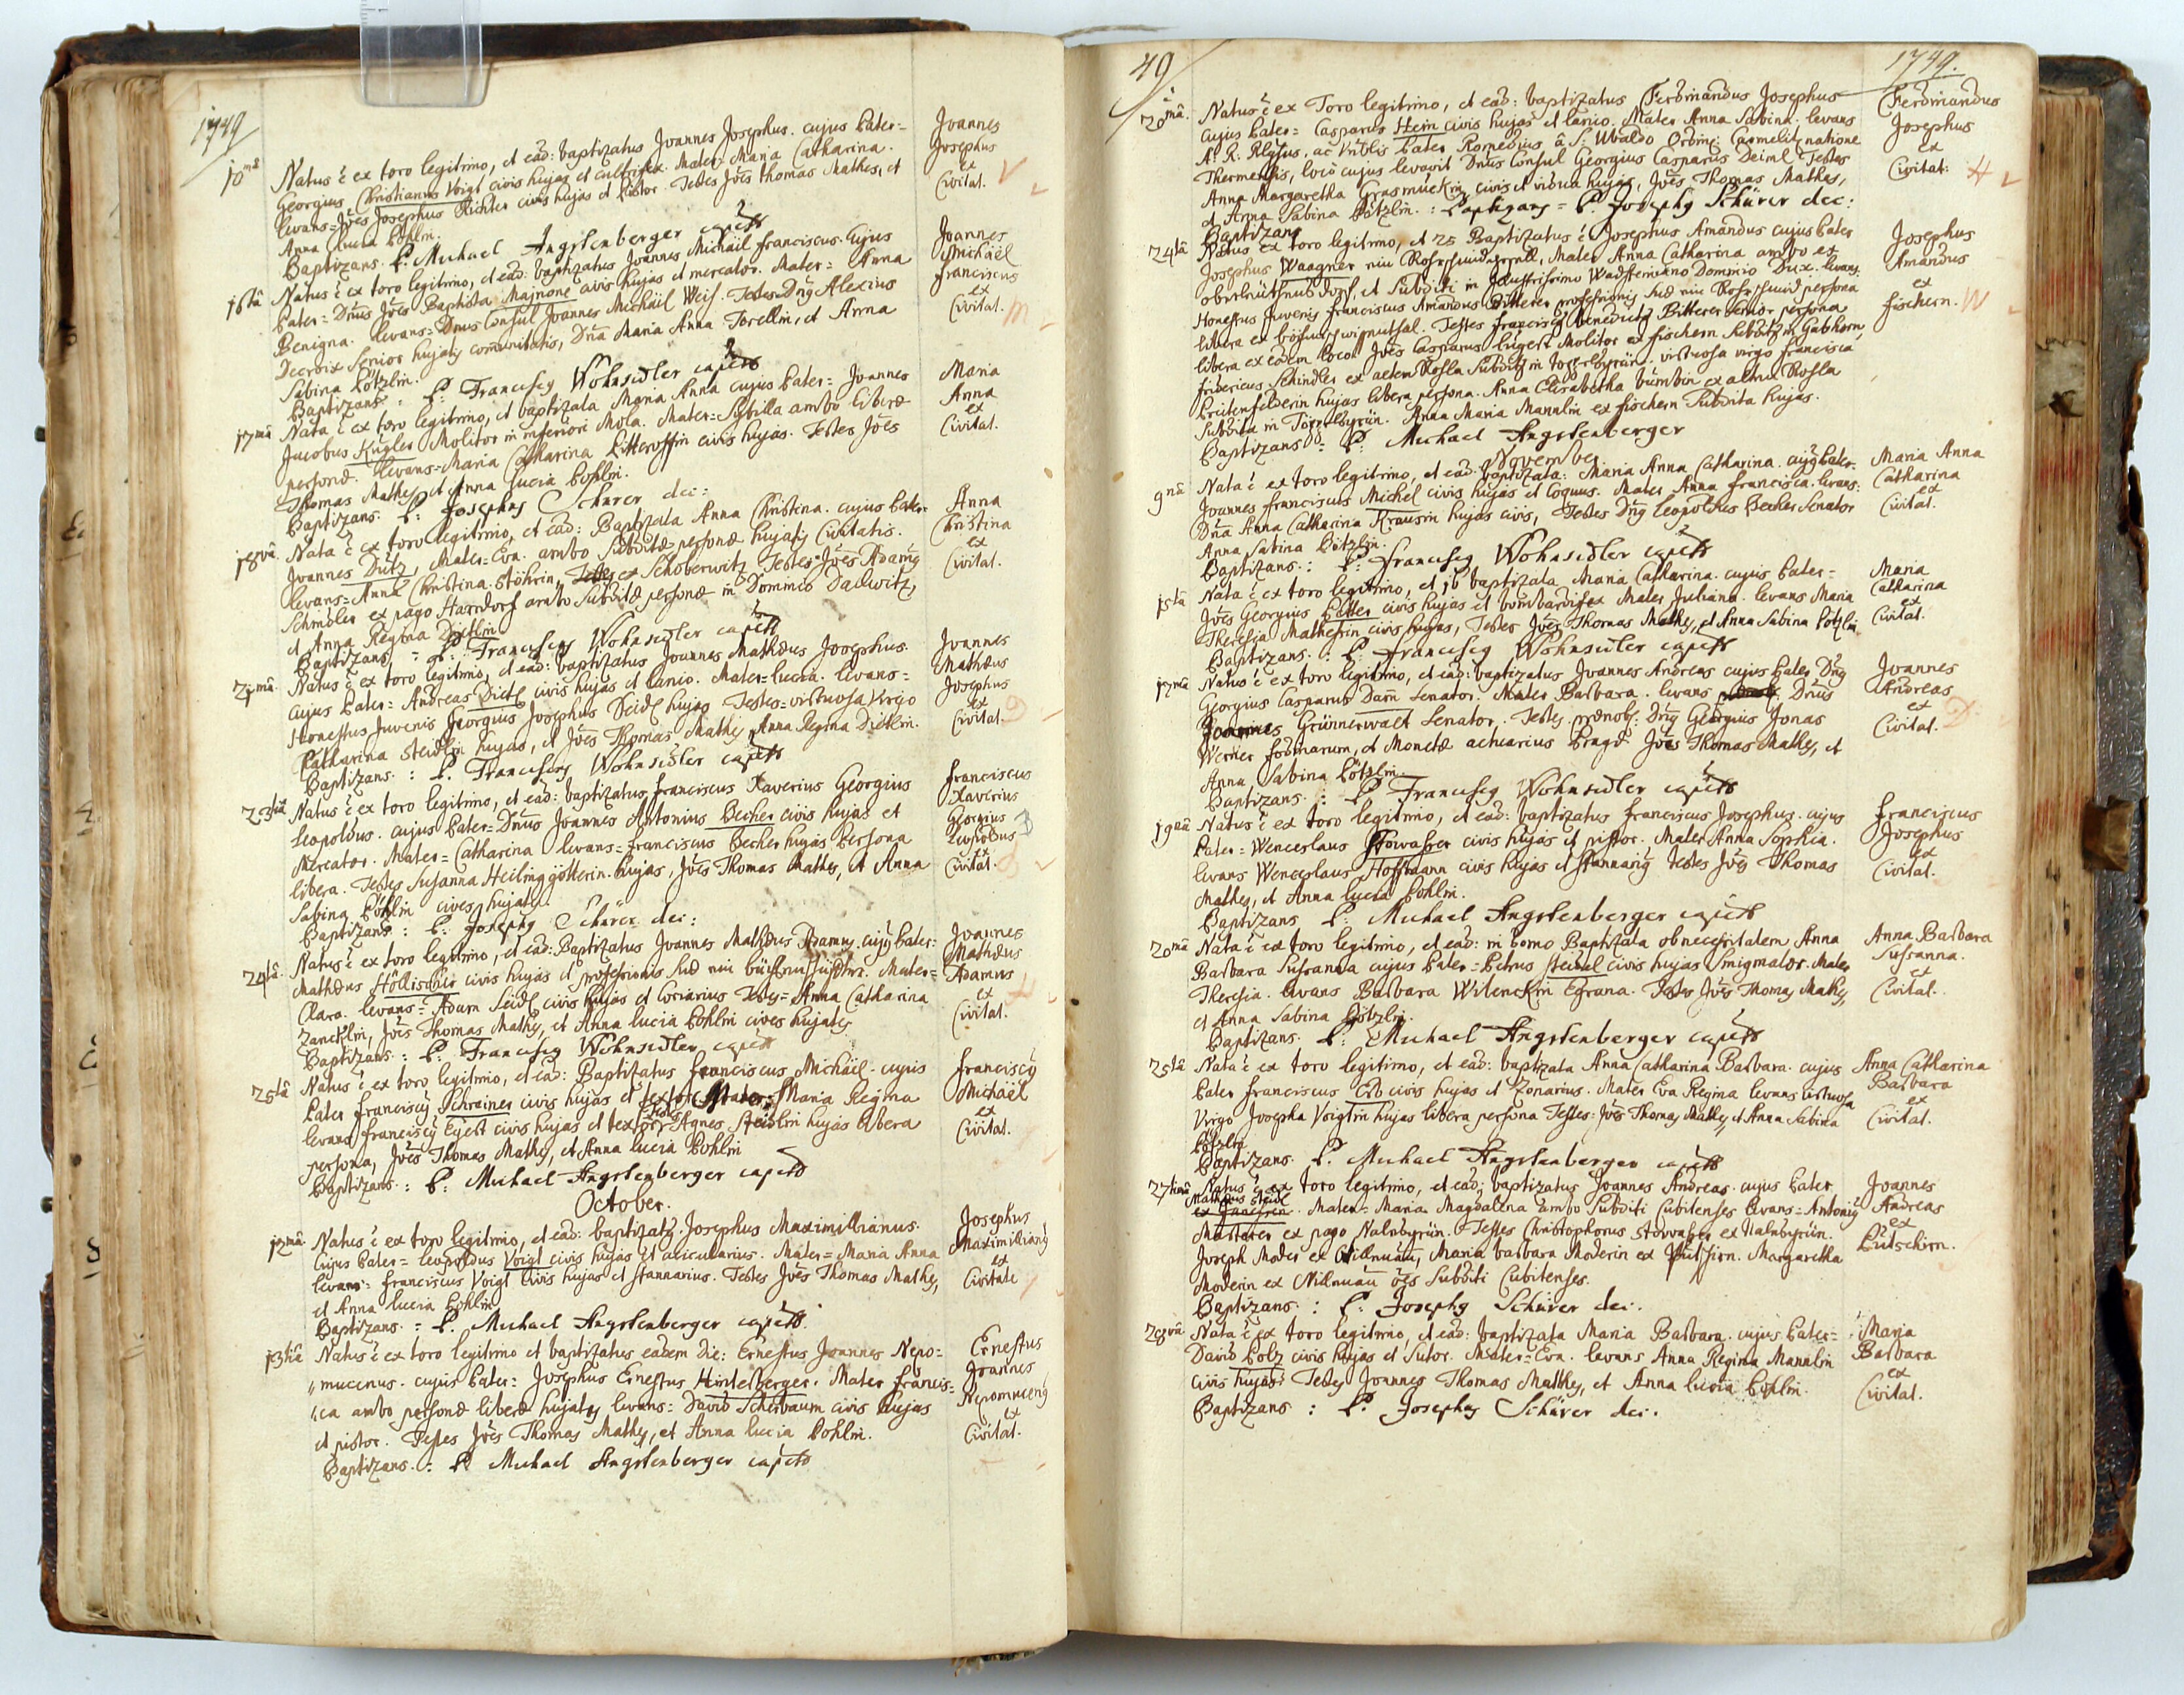 1749
10mâ Natus ē ex toro legitimo, et ead: baptizatus Joannes Josephus. cujus Pater= Joannes
Georgius Christianus Voigt civis hujas et cultrifex. Mater Maria Catharina. Josephus
levans=Jões Josephus Richter civis hujas et Pistor. Testes Jões Thomas Mathes, et ex
Anna Lucia Pohlin. Civitat. V
Baptizans. P: Michael Angstenberger capell
16tâ Natus ē ex toro legitimo, et ead: baptizatus Joannes Michäel Franciscus. Cujus Joannes
Pater= Dnus Jões Baptista Majnone civis hujas et mercator. Mater= Anna Michäel
Benigna. levans= Dnus Consul Joannes Michäel Weis. Testes Dng Alexius Franciscus
Decroix Senior hujatis comunitatis, Dña Maria Anna Torellin, et Anna ex
Sabina Pötzlin. Civitat. M
Baptizans: P: Franciscq Wohnsidler capell
17mâ Nata ē ex toro legitimo, et baptizata Maria Anna cujus Pater= Joannes Maria
Jacobus Kugler Molitor in inferiori Mola. Mater=Sybilla ambo liberæ Anna
personæ. levans=Maria Catharina Litteroffin civis hujas. Testes Jões ex
Thomas Mathes et Anna Lucia Pohlin. Civitat.
Baptizans. P: Josephq Schürer dec:
18vâ Nata ē ex toro legitimo, et ead: Baptizata Anna Christina. cujus Pater= Anna
Joannes Dütz, Mater=Eva. ambo Subditæ personæ hujatis Civitatis. Christina
levans=Anna Christina Stöhrin, ex Schoberwitz Testes Jões Adamq ex
Schmöler ex pago Harrdorf ambo Subditæ personæ in Dominio Dalwitz, Civitat.
et Anna Regina Dietlin
Baptizans = P: Franciscq Wohnsidler capell
21mâ Natus ē ex toro legitimo, et ead: baptizatus Joannes Mathæus Josephus. Joannes
cujus Pater= Andreas Dietl civis hujas et Lanio. Mater=Lucia. levans= Mathæus
Honestus Juvenis Georgius Josephus Deidl hujas Testes=virtuosa Virgo Josephus
Catharina Steidlin hujas, et Jões Thomas Mathes Anna Regina Dietlin. ex
Baptizans: P. Franciscq Wohnsidler capell Civitat. D
23tiâ Natus ē ex toro legitimo, et ead: baptizatus Franciscus Xaverius Georgius Franciscus
Leopoldus. cujus Pater=Dnus Joannes Antonius Becher civis hujas et Xaverius
Mercator. Mater=Catharina levans=Franciscus Becher hujas Persona Georgius
libera. Testes Susanna Heilinggötterin hujas, Jões Thomas Mathes, et Anna Leopoldus
Sabina Pöhlin cives hujates. ex
Baptizans: P: Josephq Schürer dec: Civitat. B
24tâ Natus ē ex toro legitimo, et ead: Baptizatus Joannes Mathæus Adamus. cujq Pater= Joannes
Mathæus Höllischer civis hujas et professionis Mater= Mathæus
Clara. levans= Adam Seidl civis hujas et Coriarius Testes=Anna Catharina Adamus
Zancklin, Jões Thomas Mathes, et Anna Lucia Pohlin cives hujates ex
Baptizans: P: Franciscq Wohnsidler capell Civitat.
25tâ Natus ē ex toro legitimo, et ead: Baptizatus Franciscus Michäel. cujus Franciscq
Pater Franciscq Schrainer civis hujas et textor Mater= Maria Regina Michäel
levans Franciscq Egert civis hujas et textor Testes Agnes Steidlin hujas libera ex
persona, Jões Thomas Mathes, et Anna Lucia Pohlin Civitat.
Baptizans: P: Michael Angstenberger capell
October.
12mâ Natus ē ex toro legitimo, et ead: baptizatq. Josephus Maximillianus. Josephus
Cujus Pater= Leopoldus Voigt civis hujas et acicularius. Mater=Maria Anna Maximillianq
levans= Franciscus Voigt Civis hujas et Stannarius. Testes Jões Thomas Mathes, ex
et Anna Lucia Pohlin Civitate
Baptizans: P. Michael Angstenberger capell
13tiâ Natus ē ex toro legitimo et baptizatus eadem die: Ernestus Joannes Nepo= Ernestus
mucenus. cujus Pater= Josephus Ernestus Hinterberger. Mater Francis= Joannes
ca ambo personæ liberæ hujates levans= David Scherbaum civis hujas Nepomucenq
et pistor. Testes Jões Thomas Mathes, et Anna Lucia Pohlin. ex
Baptizans: P. Michael Angstenberger capell Civitat.
49 1749.
20mâ. Natus ē ex Toro legitimo, et ead: baptizatus Ferdinandus Josephus Ferdinandus
cujus Pater= Casparus Hein civis hujas et lanio. Mater Anna Sabina. levans Josephus
A: R: Rlgsus, ac Vnblis Pater Romedius â S: Ubaldo Ordinis Carmelit: natione ex
Thermensis, loco cujus levavit Dnus Consul Georgius Casparus Deiml Testes Civitat: H
Anna Margaretha Grasmückin civis et vidua hujas, Jões Thomas Mathes,
et Anna Sabina Pötzlin. : Baptizans = P. Josephq Schürer dec:
Baptizans
24tâ Natus ex toro legitimo, et 25 Baptizatus ē Josephus Amandus cujus Pater Josephus
Josephus Waagner Mater Anna Catharina ambo ex Amandus
et Subditi in Illustrissimo Dominio levans ex
Honestus Juvenis Franciscus Amandus Bitterer professionis persona Fischern. W
libera ex Testes Franciscq Benedictq Bitterer Senior persona
libera ex eadem loco. Jões Casparus Lugert Molitor ex Fischern Subditq in Gabhorn,
Fridericus Schindler ex alten Rohla Subditq in virtuosa virgo Francisca
Breitenfelderin hujas libera persona. Anna Elisabetha ex alten Rohla
Subdita in Anna Maria Manulin ex Fischern Subdita hujas.
Baptizans= P: Michael Angstenberger
November
9nâ Nata ē ex toro legitimo, et ead: baptizata: Maria Anna Catharina. cujq Pater= Maria Anna
Joannes Franciscus Michel civis hujas et Coquus. Mater Anna Francisca. levans: Catharina
Dña Anna Catharina Krausin hujas civis, Testes Dng Leopoldus Becher Senator ex
Anna Sabina Pötzlin. Civitat.
Baptizans: P: Franciscq Wohnsidler capell
15tâ Nata ē ex toro legitimo, et 16 baptizata Maria Catharina. cujus Pater= Maria
Jões Georgius civis hujas et bombardifex Mater Juliana. levans Maria Catharina
Theresia Mathesin civis hujas, Testes Jões Thomas Mathes, et Anna Sabina Pötzlin. ex
Baptizans: P. Franciscq Wohnsidler capell Civitat.
17mâ Natus ē ex toro legitimo, et ead: baptizatus Joannes Andreas cujus Pater Dnq Joannes
Georgius Casparus Dam Senator. Mater Barbara. levans Dnus Andreas
Joannes Grünnerwalt Senator. Testes Dng Georgius Jonas ex
Werner fodinarum, et Monetæ actuarius Pragæ. Jões Thomas Mathes, et Civitat. D
Anna Sabina Pötzlin.
Baptizans: P. Franciscq Wohnsidler capell
19nâ Natus ē ex toro legitimo, et ead: baptizatus Franciscus Josephus. cujus Franciscus
Pater= Wenceslaus Stowasser civis hujas et pistor. Mater Anna Sophia. Josephus
levans Wenceslaus Hoffmann civis hujas et Stannariq Testes Jões Thomas ex
Mathes, et Anna Lucia Pohlin. Civitat.
Baptizans P: Michael Angstenberger capell
20mâ Nata ē ex toro legitimo, et ead: in Domo Baptizata ob necessitatem Anna Anna Barbara
Barbara Susanna cujus Pater=Petrus Heidel civis hujas Smigmator. Mater Susanna.
Theresia. levans Barbara Wilenckin Egrana. Testes Jões Thomas Mathes, ex
et Anna Sabina Pötzlin. Civitat.
Baptizans. P: Michael Angstenberger capell
25tâ Nata ē ex toro legitimo, et ead: baptizata Anna Catharina Barbara. cujus Anna Catharina
Pater Franciscus Erb civis hujas et Zonarius. Mater Eva Regina levans virtuosa Barbara
Virgo Josepha Voigtin hujas libera persona Testes: Jões Thomas Mathes, et Anna Sabina ex
Pötzlin Civitat.
Baptizans. P. Michael Angstenberger capell
27timâ Natus ē ex toro legitimo, et ead: baptizatus Joannes Andreas. cujus Pater Joannes
Mathæus Steidl Mater= Maria Magdalena ambo Subditi Cubitenses levans=Antoniq Andreas
ex pago Testes Christophorus Stowasser ex ex
Joseph Moder ex Maria Barbara Moderin ex Putschirn. Margaretha Putschirn.
Moderin ex oẽs Subditi Cubitenses.
Baptizans: P: Josephq Schürer dec.
28vâ Nata ē ex toro legitimo, et ead: baptizata Maria Barbara. cujus Pater= Maria
David Polz civis hujas et Sutor. Mater=Eva. levans Anna Regina Manulin Barbara
civis hujas. Testes Joannes Thomas Mathes, et Anna Lucia Pöhlin. ex
Baptizans: P. Josephq Schürer dec. Civitat.